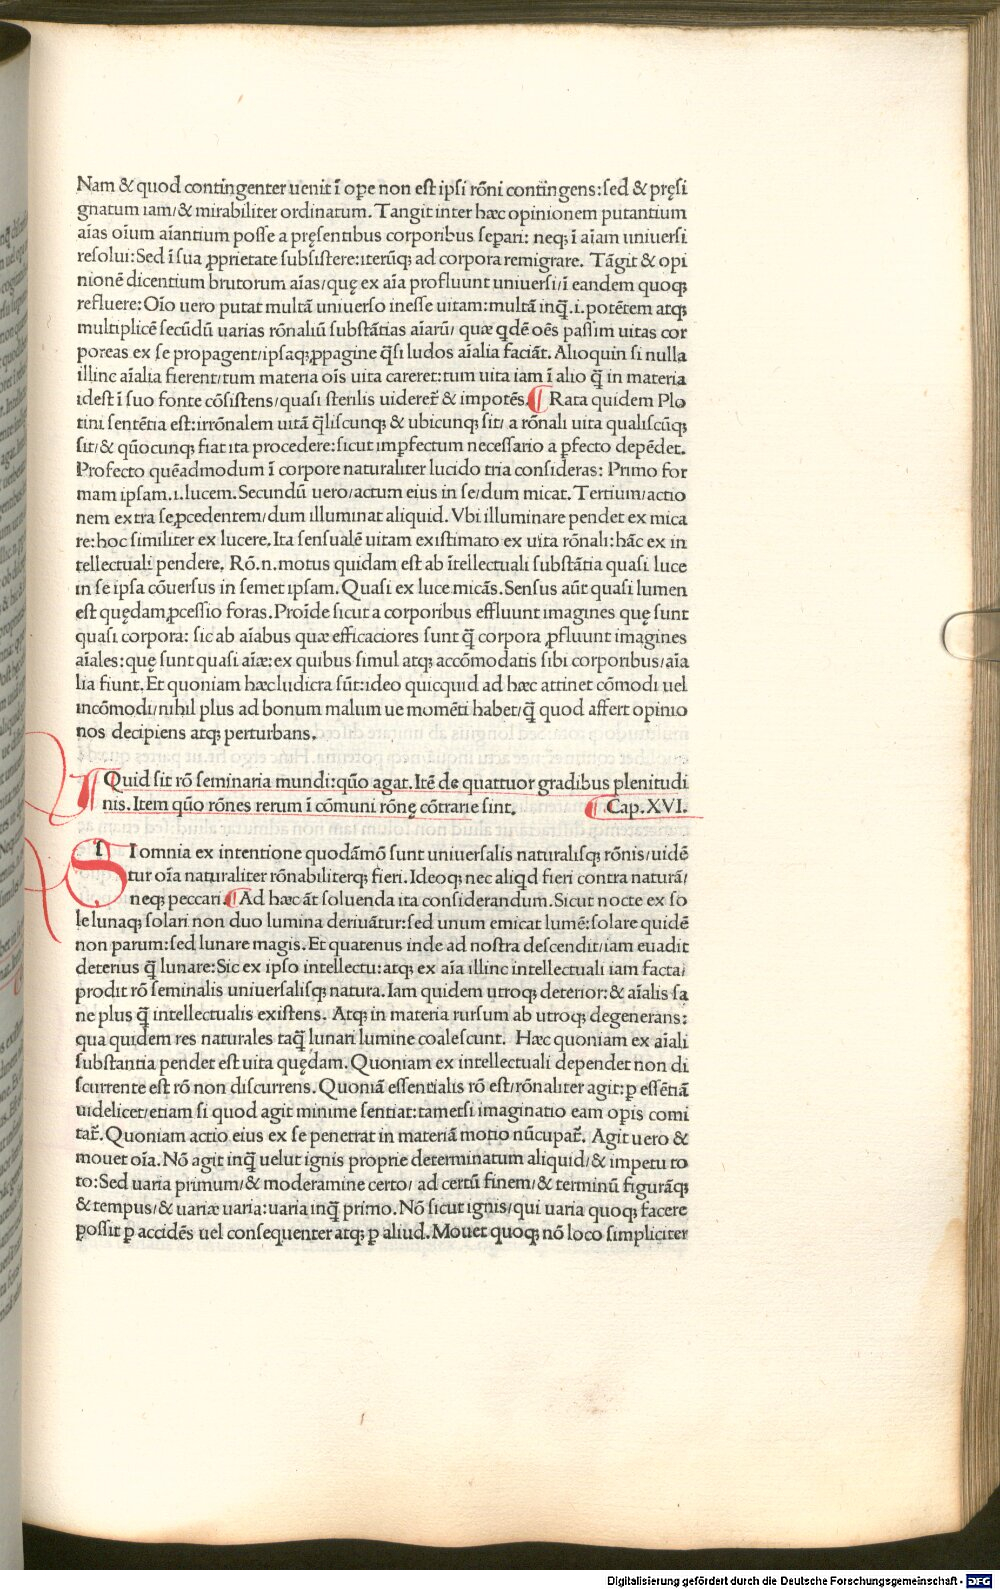 Nam & quod contingenter uenit ī ope non est ipsi rōni contingens:sed & pręsi
gnatum iam/& mirabiliter ordinatum. Tangit inter hæc opinionem putantium
aīas oīum aīantium posse a pręsentibus corporibus separi: neq; ī aīam uniuersi
resolui:Sed ī sua ꝓprietate subsistere:iterūq; ad corpora remigrare. Tāgit & opi
nionē dicentium brutorum aīas/quę ex aīa profluunt uniuersi/ī eandem quoq;
refluere:Oīo uero putat multā uniuerso inesse uitam:multā inq̄.i.potētem atq;
multiplicē secūdū uarias rōnaliū substātias aīarū/ quæ qdē oēs passim uitas cor
poreas ex se propagent/ipsaq;ꝓpagine q̄si ludos aīalia faciāt. Alioquin si nulla
illinc aīalia fierent/tum materia oīs uita careret:tum uita iam ī alio q̄ in materia
idest ī suo fonte cōsistens/quasi sterilis uideret̄ & impotēs. ¶ Rata quidem Plo
tini sentētia est:irrōnalem uitā q̄liscunq; & ubicunq; sit/ a rōnali uita qualiscūq;
sit/& qūocunq; fiat ita procedere:sicut imꝑfectum necessario a ꝑfecto depēdet.
Profecto quēadmodum ī corpore naturaliter lucido tria consideras: Primo for
mam ipsam.i.lucem.Secundū uero/actum eius in se/dum micat. Tertium/actio
nem extra se ꝓcedentem/dum illuminat aliquid. Vbi illuminare pendet ex mica
re:hoc similiter ex lucere.Ita sensualē uitam existimato ex uita rōnali:hāc ex in
tellectuali pendere. Rō.n.motus quidam est ab ītellectuali substātia quasi luce
in se ipsa cōuersus in semet ipsam. Quasi ex luce micās. Sensus aūt quasi lumen
est quędam ꝓcessio foras. Proīde sicut a corporibus effluunt imagines quę sunt
quasi corpora: sic ab aīabus quæ efficaciores sunt q̄ corpora ꝓfluunt imagines
aīales:quę sunt quasi aīæ:ex quibus simul atq; accōmodatis sibi corporibus/aīa
lia fiunt. Et quoniam hæc ludicra sūt:ideo quicquid ad hæc attinet cōmodi uel
incōmodi/nihil plus ad bonum malum ue momēti habet/q̄ quod affert opinio
nos decipiens atq; perturbans.
¶ Quid sit rō seminaria mundi:qūo agat. Itē de quattuor gradibus plenitudi
nis. Item qūo rōnes rerum ī cōmuni rōnę cōtrarie sint. ¶ Cap.XVI.
SI omnia ex intentione quodāmō sunt uniuersalis naturalisq; rōnis/uidē
tur oīa naturaliter rōnabiliterq; fieri. Ideoq; nec aliqd fieri contra naturā/
neq; peccari. ¶ Ad hæc āt soluenda ita considerandum. Sicut nocte ex so
le lunaq; solari non duo lumina deriuātur:sed unum emicat lumē:solare quidē
non parum:sed lunare magis. Et quatenus inde ad nostra descendit/iam euadit
deterius q̄ lunare:Sic ex ipso intellectu:atq; ex aīa illinc intellectuali iam facta/
prodit rō seminalis uniuersalisq; natura. Iam quidem utroq; deterior:& aīalis sa
ne plus q̄ intellectualis existens. Atq; in materia rursum ab utroq; degenerans:
qua quidem res naturales taq̄ lunari lumine coalescunt. Hæc quoniam ex aīali
substantia pendet est uita quędam. Quoniam ex intellectuali dependet non di
scurrente est rō non discurrens. Quoniā essentialis rō est/rōnaliter agit:ꝑ essētiā
uidelicet/etiam si quod agit minime sentiat:tametsi imaginatio eam opis comi
tat̄. Quoniam actio eius ex se penetrat in materiā motio nūcupat̄. Agit uero &
mouet oīa. Nō agit inq̄ uelut ignis proprie determinatum aliquid/& impetu to
to:Sed uaria primum/& moderamine certo/ ad certū finem/& terminū figurāq;
& tempus/& uariæ uaria:uaria inq̄ primo. Nō sicut ignis/qui uaria quoq; facere
possit ꝑ accidēs uel consequenter atq; ꝑ aliud. Mouet quoq; nō loco simpliciter
Digitalisierung gefördert durch die Deutsche Forschungsgemeinschaft - DFG